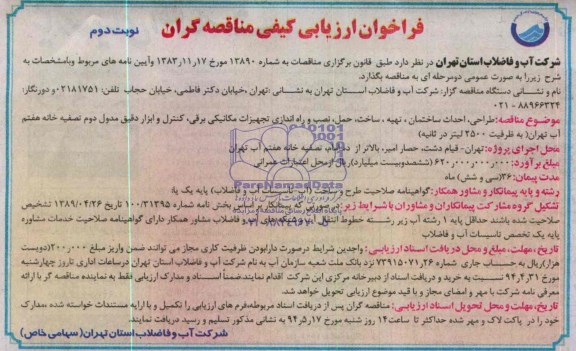 فراخوان ارزیابی کیفی مناقصه گران
نوبت دوم
شرکت آب و فاضلاب استان تهران در نظر دارد طبق قانون برگزاری مناقصات به شماره ۱۳۸۹۰ مورخ ۱۳۸۳٫۱۱٫۱۷ وآیین نامه های مربوط وبامشخصات به
شرح زیررا به صورت عمومی دومرحله ای به مناقصه بگذارد.
نام و نشانی دستگاه مناقصه گزار: شرکت آب و فاضلاب استان تهران به نشانی :تهران ،خیابان دکتر فاطمی، خیابان حجاب تلفن: ۰۲۱۸۱۷۵۱و دورنگار:
۰۲۱ - ۸۸۹۶۶۳۲۴
موضوع مناقصه:طراحی، احداث ساختمان ، تهیه ، ساخت، حمل، نصب و راه اندازی تجهیزات مکانیکی برقی، کنترل و ابزار دقیق مدول دوم تصفیه خانه هفتم
آب تهران( به ظرفیت ۲۵۰۰ لیتر در ثانیه)
محل اجرای پروژه: تهران- قیام دشت، حصار امیر، بالاتر از تصفیه خانه هفتم آب تهران
مبلغ برآورد: ۶۲۰٫۰۰۰٫۰۰۰٫۰۰۰ (ششصدوبیست میلیارد)ریال ازمحل اعتبارات عمرانی
مدت پیمان: ۳۶(سی و شش) ماه
رشته و پایه پیمانکار و مشاور همکار: گواهینامه صلاحیت طرح و ساخت (آب- تاسیسات آب و فاضلاب) پایه یک یا
تشکیل گروه مشارکت پیمانکاران و مشاوران با شرایط زیر: در صورتی که پیمانکار بخش نامه شماره ۱۰۰/۳۱۲۹۵ تاریخ ۱۳۸۹/۰۴/۲۶ تشخیص
صلاحیت شده باشند حداقل پایه ۱ رشته آب زیر رشته خطوط انتقال آب و شبکه های فاضلاب مشاور همکار دارای گواهینامه صلاحیت خدمات مشاوره
پایه یک تخصص تاسیسات آب و فاضلاب
تاریخ، مهلت، مبلغ و محل دریافت اسناد ارزیابی: واجدین شرایط درصورت دارابودن ظرفیت کاری مجاز می توانند ضمن واریز مبلغ ۲۰۰٫۰۰۰(دویست
هزار)ریال به حساب جاری شماره ۷۳۹۱۵۰۷۱٫۲۶ نزد بانک ملت شعبه سازمان آب به نام شرکت آب و فاضلاب استان تهران درساعات اداری تاروز چهارشنبه
مورخ ۹۴٫۴٫۳۱ نسبت به خرید و دریافت اسناد از دبیرخانه مرکزی این شرکت اقدام نمایند.ضمناً اسناد و مدارک ارزیابی فقط به نماینده مناقصه گر با ارائه
معرفی نامه شرکت با مهر و امضای مجاز و با قید موضوع ارزیابی تحویل خواهد شد.
تاریخ، مهلت و محل تحویل اسناد ارزیابی: مناقصه گران پس از دریافت اسناد مربوطه،فرم های ارزیابی را تکمیل و با ارایه مستندات خواسته شده ،مدارک
خود را در پاکت لاک و مهر شده حداکثر تا ساعت ۱۴ روز شنبه مورخ ۹۴٫۵٫۱۷ به نشانی مذکور تسلیم و رسید دریافت نمایند.
شرکت آب و فاضلاب استان تهران( سهامی خاص)
ParsNamadData